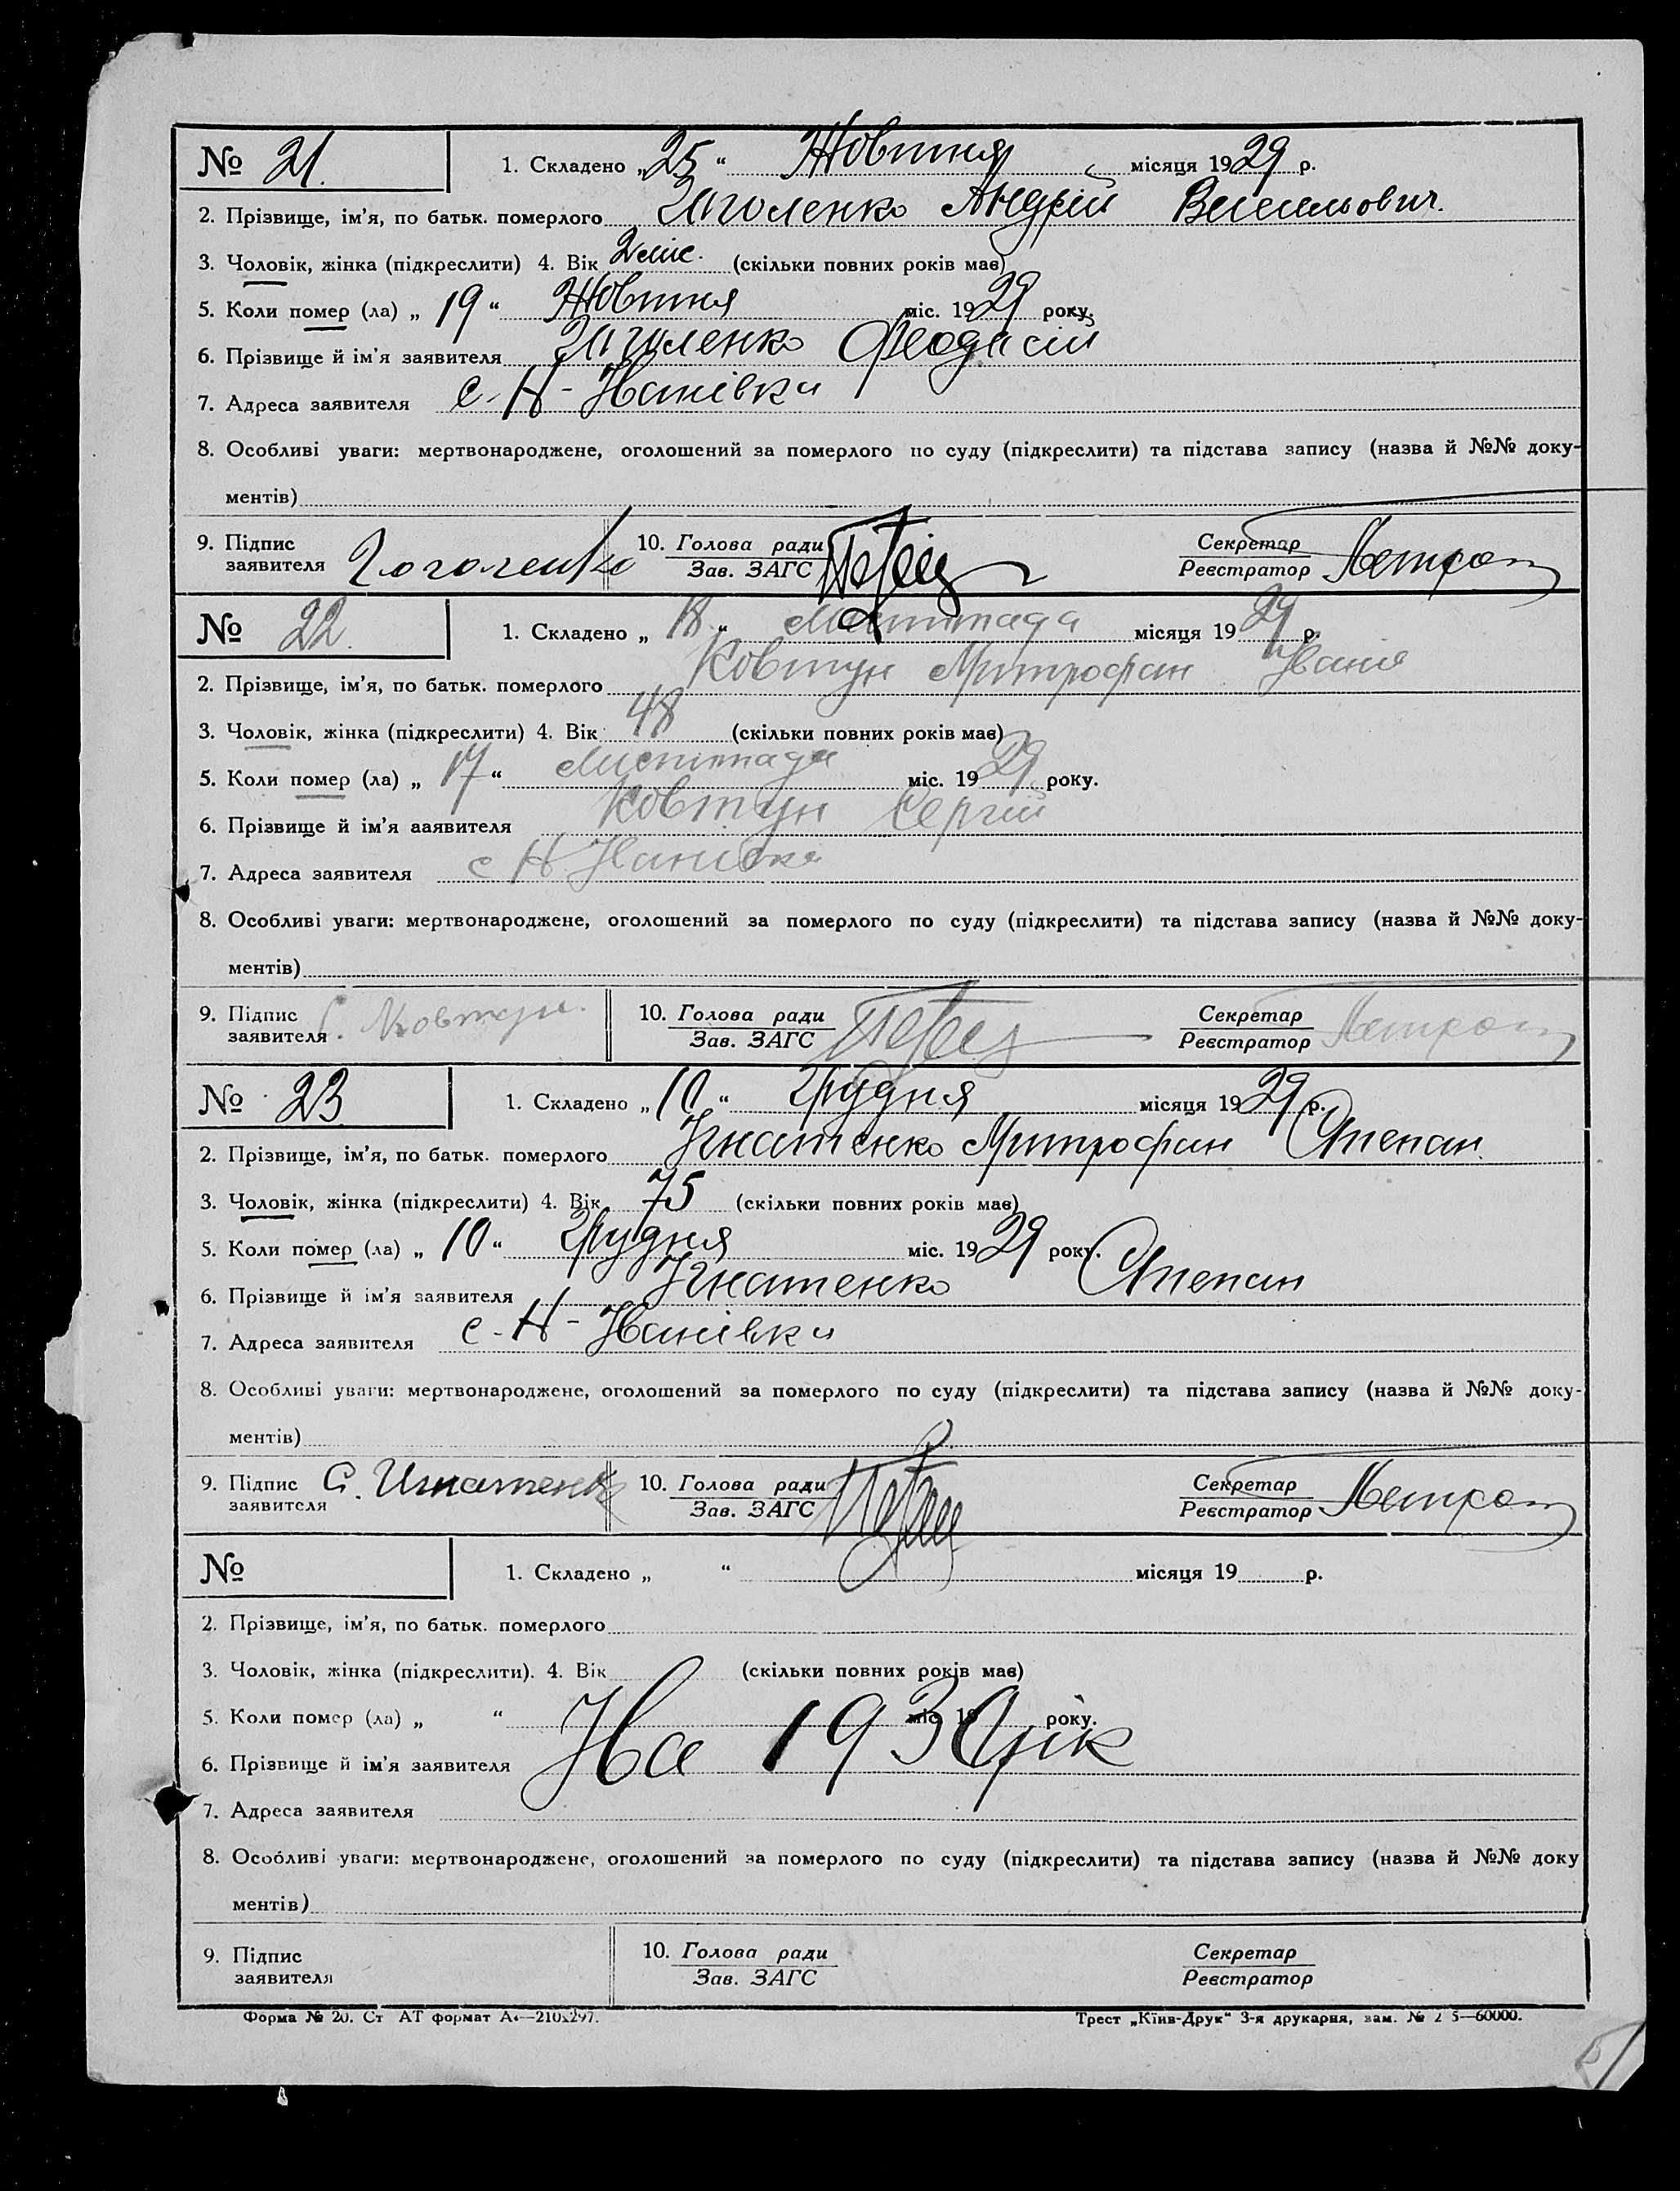 № 21. 1. Складено „25“ Жовтня місяця 1929 р.
2. Прізвище, ім’я, по батьк. померлого Гоголенко Андрій Васильович.
3. Чоловік, жінка (підкреслити) 4. Вік 2 міс. (скільки повних років має)
5. Коли помер (ла) „ 19 “ Жовтня міс. 1929 року.
6. Прізвище й ім’я заявителя Гоголенко Феодисій
7. Адреса заявителя с. Н-Іванівка
8. Особливі уваги: мертвонароджене, оголошений за померлого по суду (підкреслити) та підстава запису (назва й №№ доку-
ментів)
9. Підпис заявителя Гоголенко 10. Голова ради Секретар
Зав. ЗАГС Реєстратор
№ 22. 1. Складено „ 18 “ Листопада місяця 1929 р.
2. Прізвище, ім’я, по батьк. померлого Ковтун Митрофан Іванів
3. Чоловік, жінка (підкреслити) 4. Вік 48 (скільки повних років має)
5. Коли помер (ла) „ 17 “ Листопада міс. 1929 року.
6. Прізвище й ім’я ааявителя Ковтун Сергій
7. Адреса заявителя с Н Іванівка
8. Особливі уваги: мертвонароджене, оголошений за померлого по суду (підкреслити) та підстава запису (назва й №№ доку-
ментів)
9. Підпис заявителя С. Ковтун. 10. Голова ради Секретар
Зав. ЗАГС Реєстратор
№ 23 1. Складено „10“ Грудня місяця 1929 р.
2. Прізвище, ім’я, по батьк. померлого Ігнатенко Митрофан Степан.
3. Чоловік, жінка (підкреслити) 4. Вік 75 (скільки повних років має)
5. Коли помер (ла) „ 10 “ Грудня міс. 1929 року.
6. Прізвище й ім’я заявителя Ігнатенко Степан
7. Адреса заявителя с-Н-Іванівка
8. Особливі уваги: мертвонароджене, оголошений за померлого по суду (підкреслити) та підстава запису (назва й №№ доку-
ментів)
9. Підпис заявителя С. Игнатенко 10. Голова ради Секретар
Зав. ЗАГС Реєстратор
№ 1. Складено „ “ місяця 19 р.
2. Прізвище, ім’я, по батьк. померлого
3. Чоловік, жінка (підкреслити). 4. Вік (скільки повних років має)
5. Коли помер (ла) „ “ міс. 19 року.
На 1930 рік
6. Прізвище й ім’я заявителя
7. Адреса заявителя
8. Особливі уваги: мертвонароджене, оголошений за померлого по суду (підкреслити) та підстава запису (назва й №№ доку
ментів)
9. Підпис заявителя 10. Голова ради Секретар
Зав. ЗАГС Реєстратор
Форма № 20. Ст АТ формат А4—210х297. Трест „Київ-Друк“ 3-я друкарня, зам. № 2 5—60000.